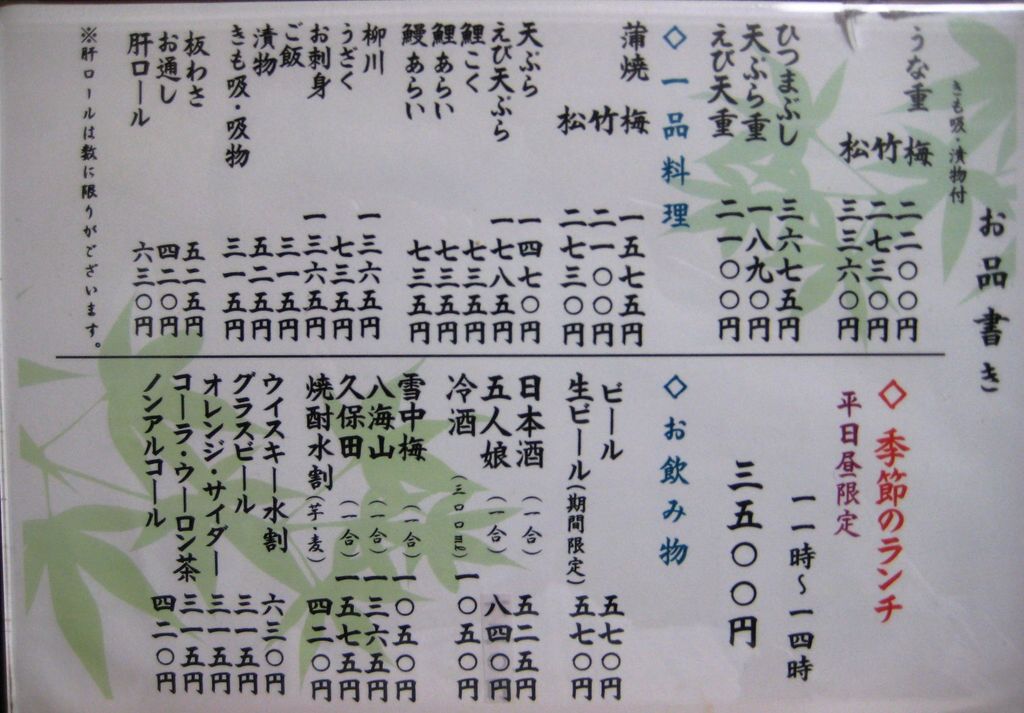 お品書き
うな重 きも吸・漬物付
梅 二二〇〇円
竹 二七三〇円
松 三三六〇円
ひつまぶし 三六七五円
天ぷら重 一八九〇円
えび天重 二一〇〇円
◇ 一品料理
蒲焼 梅 一五七五円
竹 二一〇〇円
松 二七三〇円
天ぷら 一四七〇円
えび天ぷら 一七八五円
鯉こく 七三五円
鯉あらい 七三五円
鰻あらい 七三五円
柳川 一三六五円
うざく 七三五円
お刺身 一三六五円
ご飯 三一五円
漬物 五二五円
きも吸・吸物 三一五円
板わさ 五二五円
お通し 四二〇円
肝ロール 六三〇円
※肝ロールは数に限りがございます。
◇ 季節のランチ
平日昼限定
一一時～一四時
三五〇〇円
◇ お飲み物
ビール 五七〇円
生ビール(期間限定) 五七〇円
日本酒 (一合) 五二五円
五人娘 (一合) 八四〇円
冷酒 (三〇〇ml) 一〇五〇円
雪中梅 (一合) 一〇五〇円
八海山 (一合) 一三六五円
久保田 (一合) 一五七五円
焼酎水割(芋・麦) 四二〇円
ウイスキー水割 六三〇円
グラスビール 三一五円
オレンジ・サイダー 三一五円
コーラ・ウーロン茶 三一五円
ノンアルコール 四二〇円